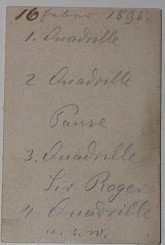 16 Febar 1898.
1. Quadrille
2 Quadrille
Pause
3. Quadrille
Sir Roger
4 Quadrille
u. s. w.